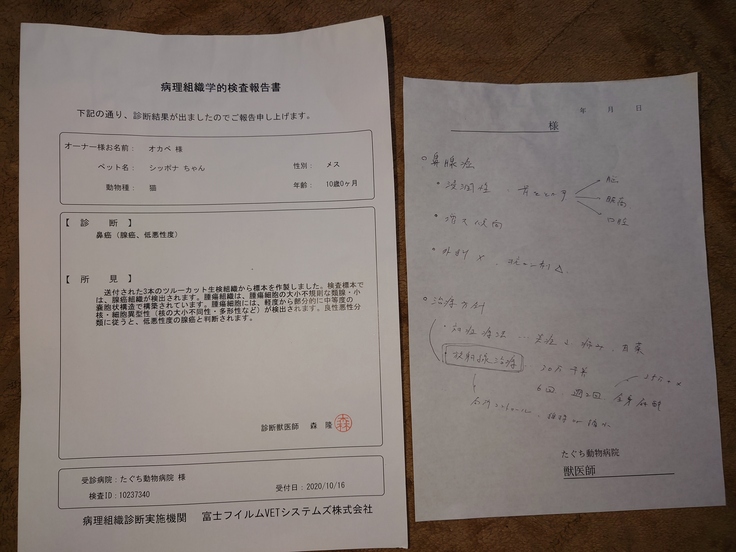 病理組織学的検査報告書
下記の通り、診断結果が出ましたのでご報告申し上げます。
オーナー様お名前： オカベ 様
ペット名： シッポナ ちゃん 性別： メス
動物種： 猫 年齢： 10歳0ヶ月
【 診 断 】
鼻癌（腺癌、低悪性度）
【 所 見 】
送付された3本のツルーカット生検組織から標本を作製しました。検査標本で
は、腺癌組織が検出されます。腫瘍組織は、腫瘍細胞の大小不規則な類腺・小
嚢胞状構造で構築されています。腫瘍細胞には、軽度から部分的に中等度の
核・細胞異型性（核の大小不同性・多形性など）が検出されます。良性悪性分
類に従うと、低悪性度の腺癌と判断されます。
診断獣医師 森 隆
森
受診病院：たぐち動物病院 様
検査ID：10237340 受付日：2020/10/16
病理組織診断実施機関 富士フイルムVETシステムズ株式会社
年 月 日
様
鼻腺癌
浸潤性
脳
眼窩
口腔
外科 ×
治療方針
放射線治療
6回 週2回 全身麻酔
たぐち動物病院
獣医師